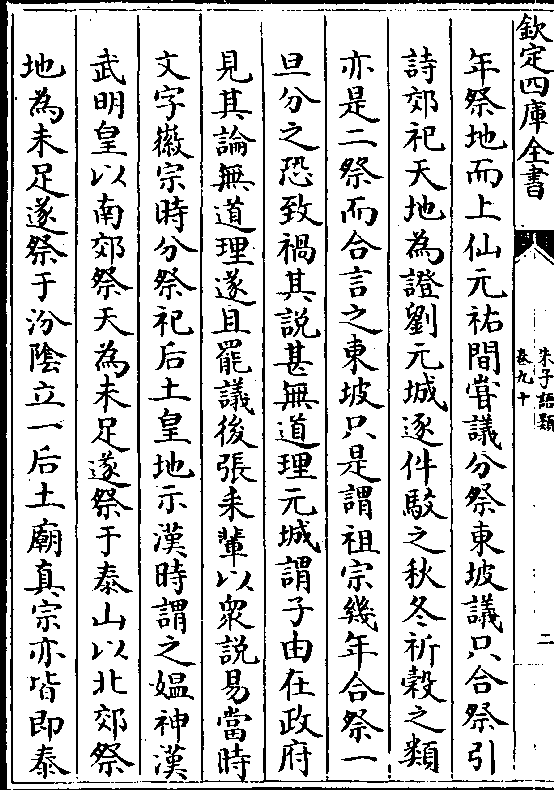 欽定四庫全書
朱子語類
卷九十
二
年祭地而上仙元祐間嘗議分祭東坡議只合祭引
詩郊祀天地為證劉元城逐件駮之秋冬祈榖之類
亦是二祭而合言之東坡只是謂祖宗幾年合祭一
旦分之恐致禍其說甚無道理元城謂子由在政府
見其論無道理遂且罷議後張耒輩以衆説易當時
文字徽宗時分祭祀后土皇地示漢時謂之媪神漢
武明皇以南郊祭天為未足遂祭于泰山以北郊祭
地為未足遂祭于汾隂立一后土廟真宗亦皆即泰